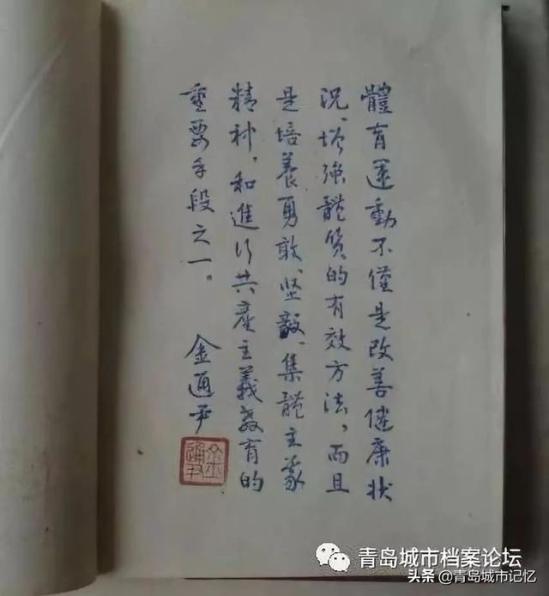 體育運動不僅是改善健康狀
况、增強體质的有效方法，而且
是培養勇敢、坚毅、集體主義
精神，和進行共產主義教育的
重要手段之一。
金通尹
青岛城市档案论坛
头条@青岛城市记忆